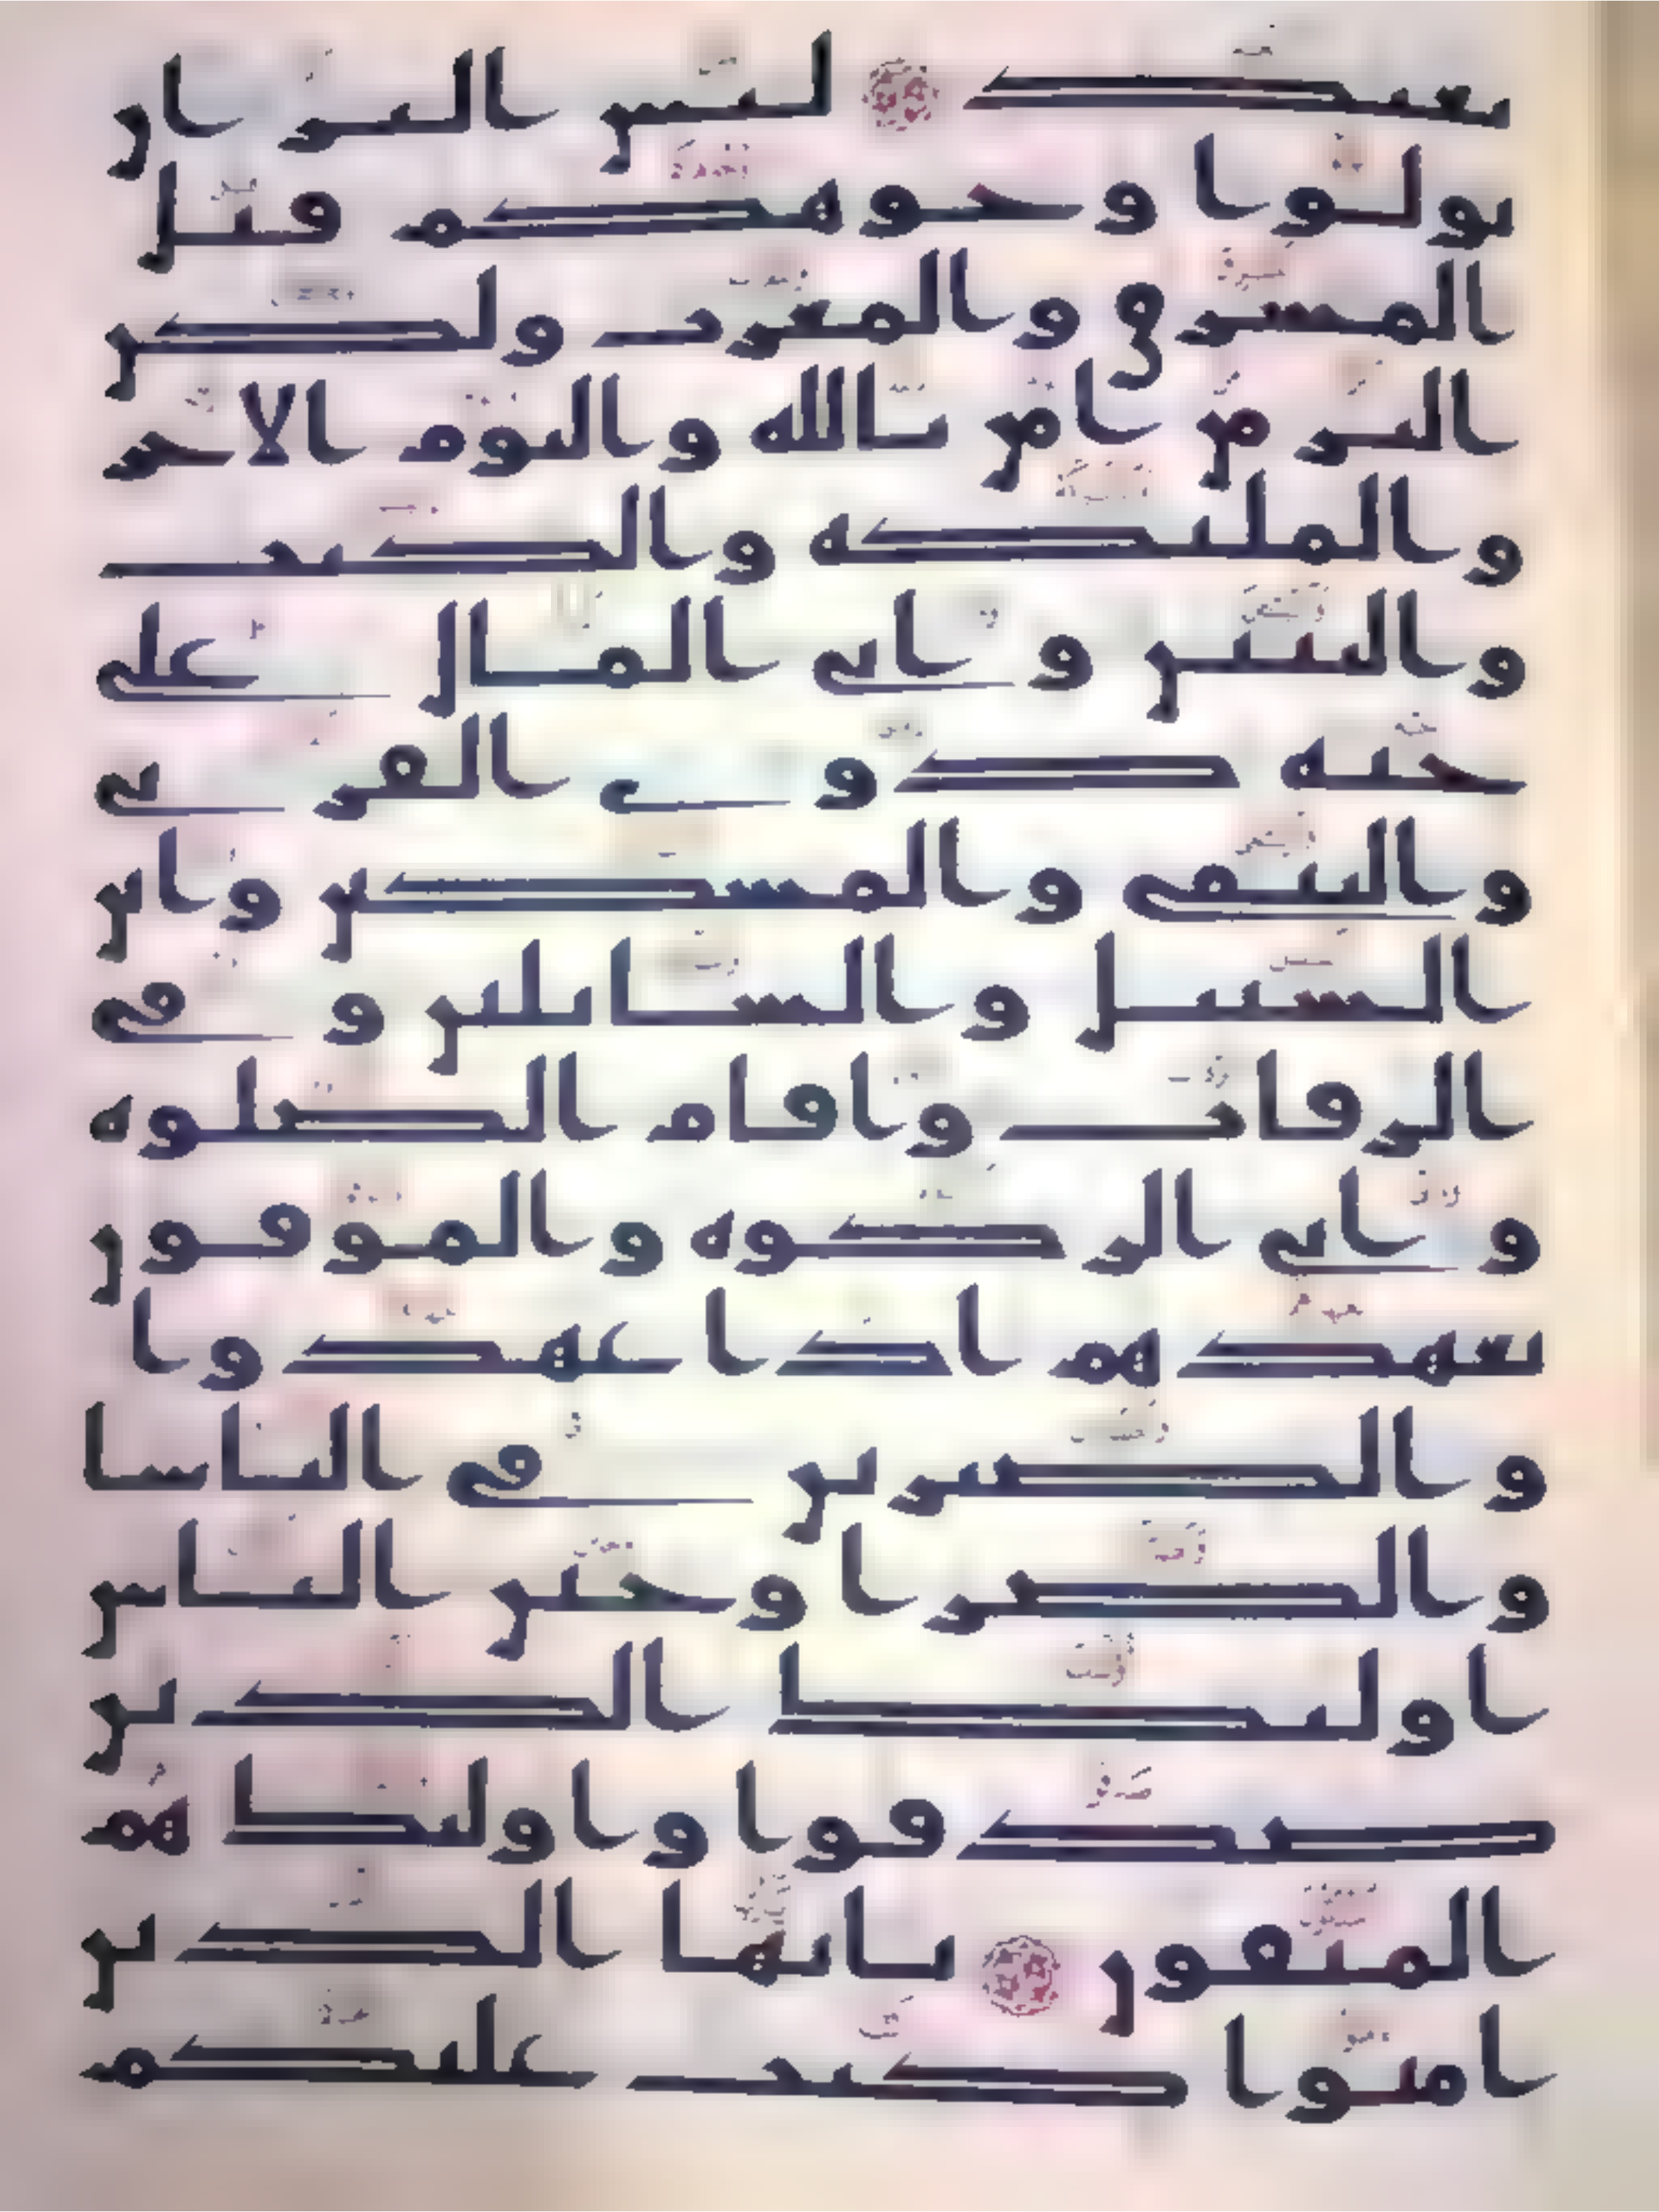 بعيد ليس البر ان
تولوا وجوهكم قبل
المشرق والمغرب ولكن
البر من امن بالله واليوم الاخر
والمليكه والكتب
والنبين واتى المال على
حبه ذوى القربى
واليتمى والمسكين وابن
السبيل والسايلين وفى
الرقاب واقام الصلوه
واتى الزكوه والموفون
بعهدهم اذا عهدوا
والصبرين فى الباسا
والضرا وحين الباس
اوليك الذين
صدقوا واوليك هم
المتقون يايها الذين
امنوا كتب عليكم